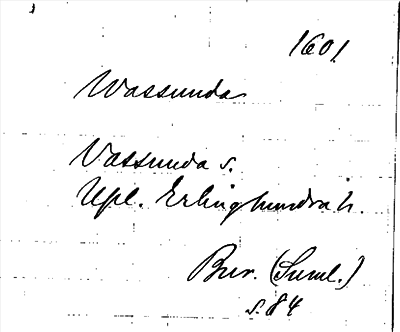 1601
Wassunda
Vassunda s.
Upl. Erlinghundra h.
Bur. (Suml.)
s. 84